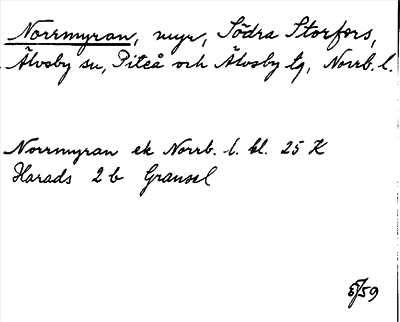 Norrmyran, myr, Södra Storfors,
Älvsby sn, Piteå och Älvsby tg, Norrb. l.
Norrmyran ek Norrb. l. bl. 25 K
Harads 2 b Gransel
59